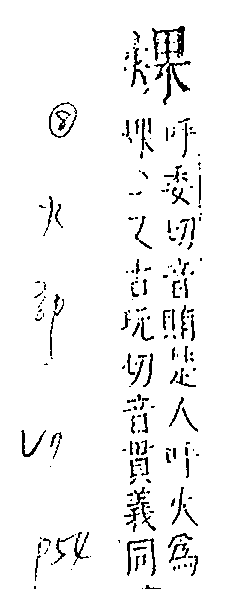 㷄
呼委切音賄楚人呼火爲
㷄〻又古玩切音貫義同
⑧ 火部 V7 P54